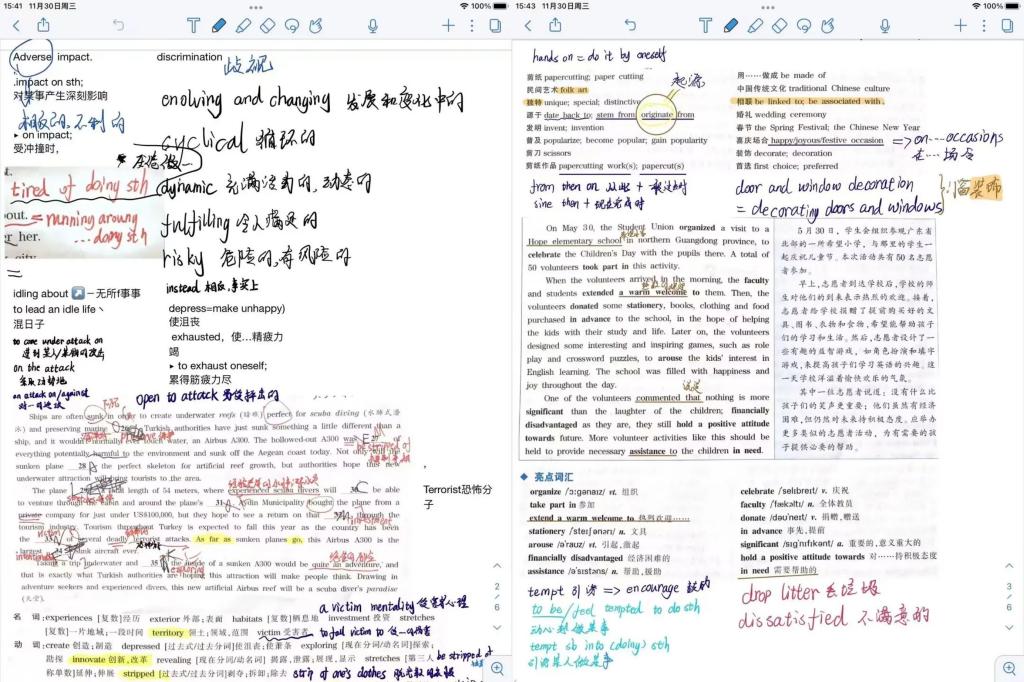 15:41 11月30日周三
100%
Adverse impact.
.impact on sth;
对某事产生深刻影响
相反的,不利的
▸ on impact;
受冲撞时,
discrimination
歧视
enolving and changing 发展和变化中的
cyclical 循环的
dynamic 充满活力的,动态的
fulfilling 令人满足的
risky 危险的,有风险的
instead 相反,事实上
tired of doing sth
out. = running aroung
er her. ... doing sth
=
idling about ↗ –无所f事事
to lead an idle life丶
混日子
depress=make unhappy)
使沮丧
exhausted, 使…精疲力
竭
▸ to exhaust oneself;
累得筋疲力尽
to come under attack on
遭到某人/某物的攻击
on the attack
采取攻势地
an attack on/against
open to attack 易受抨击的
Ships are often sunk in order to create underwater reefs (暗礁) perfect for scuba diving (水肺式潜
水) and preserving marine 26 Turkish authorities have just sunk something a little different than a
ship, and it wouldn't normally ever touch water, an Airbus A300. The hollowed-out A300 was 27 of
everything potentially harmful to the environment and sunk off the Aegean coast today. Not only will the
sunken plane 28 the perfect skeleton for artificial reef growth, but authorities hope this new
underwater attraction will bring tourists to the area.
The plane 29 a total length of 54 meters, where experienced scuba divers will 30 be able
to venture through the cabin and around the plane's 31 Aydin Municipality bought the plane from a
private company for just under US$100,000, but they hope to see a return on that 32 through the
tourism industry. Tourism throughout Turkey is expected to fall this year as the country has been
the 33 of several deadly terrorist attacks. As far as sunken planes go, this Airbus A300 is the
largest 34 sunk aircraft ever.
Taking a trip underwater and 35 the inside of a sunken A300 would be quite an adventure, and
that is exactly what Turkish authorities are hoping this attraction will make people think. Drawing in
adventure seekers and experienced divers, this new artificial Airbus reef will be a scuba diver's paradise
(天堂).
Terrorist恐怖分
子
a victim mentality 受害者心理
名 词:experiences [复数]经历 exterior 外部;表面 habitats [复数]栖息地 investment 投资 stretches
[复数]一片地域;一段时间 territory 领土;领域,范围 victim 受害者
动 词:create 创造;制造 depressed [过去式/过去分词]使沮丧;使萧条 exploring [现在分词/动名词]探索;
勘探 innovate 创新,改革 revealing [现在分词/动名词] 揭露,泄露;展现,显示 stretches [第三人
称单数]延伸;伸展 stripped [过去式/过去分词]剥夺;拆卸;除去
to fall victim to
be stripped of
strip of one's clothes
2
6
15:43 11月30日周三
100%
hands on = do it by oneself
剪纸 papercutting; paper cutting
民间艺术 folk art
独特 unique; special; distinctive
源于 date back to; stem from; originate from
起源
发明 invent; invention
普及 popularize; become popular; gain popularity
剪刀 scissors
剪纸作品 papercutting work(s); papercut(s)
用……做成 be made of
中国传统文化 traditional Chinese culture
相联 be linked to; be associated with.
婚礼 wedding ceremony
春节 the Spring Festival; the Chinese New Year
喜庆场合 happy/joyous/festive occasion
装饰 decorate; decoration
首选 first choice; preferred
=> on ... occasions
在…场合
from then on 从此 + 一般过去时
sine then + 现在完成时
door and window decoration
= decorating doors and windows
门窗装饰
On May 30, the Student Union organized a visit to a
Hope elementary school in northern Guangdong province, to
celebrate the Children's Day with the pupils there. A total of
50 volunteers took part in this activity.
When the volunteers arrived in the morning, the faculty
and students extended a warm welcome to them. Then, the
volunteers donated some stationery, books, clothing and food
purchased in advance to the school, in the hope of helping
the kids with their study and life. Later on, the volunteers
designed some interesting and inspiring games, such as role
play and crossword puzzles, to arouse the kids' interest in
English learning. The school was filled with happiness and
joy throughout the day.
One of the volunteers commented that nothing is more
significant than the laughter of the children; financially
disadvantaged as they are, they still hold a positive attitude
towards future. More volunteer activities like this should be
held to provide necessary assistance to the children in need.
5月30日,学生会组织参观广东省
北部的一所希望小学,与那里的学生一
起庆祝儿童节。本次活动共有50名志愿
者参加。
早上,志愿者到达学校后,学校的师
生对他们的到来表示热烈的欢迎。接着,
志愿者给学校捐赠了提前购买好的文
具、图书、衣物和食物,希望能帮助孩子
们的学习和生活。然后,志愿者设计了一
些有趣的益智游戏,如角色扮演和填字
游戏,来提高孩子们学习英语的兴趣。这
一天学校洋溢着愉快欢乐的气氛。
其中一位志愿者说道:没有什么比
孩子们的笑声更重要;他们虽然有经济
困难,但仍然对未来持积极态度。应举办
更多类似的志愿者活动,为有需要的孩
子提供必要的帮助。
◆ 亮点词汇
organize /ɔːɡənaɪz/ vt. 组织
take part in 参加
extend a warm welcome to 热烈欢迎……
stationery /steɪʃənəri/ n. 文具
arouse /əˈraʊz/ vt. 引起,激起
financially disadvantaged 经济困难的
assistance /əˈsɪstəns/ n. 帮助,援助
celebrate /selɪbreɪt/ v. 庆祝
faculty /fækəlti/ n. 全体教员
donate /dəʊˈneɪt/ v. 捐赠,赠送
in advance 事先,提前
significant /sɪɡˈnɪfɪkənt/ a. 重要的,意义重大的
hold a positive attitude towards 对……持积极态度
in need 需要帮助的
tempt 引诱 => encourage 鼓励
to be/feel tempted to do sth
动心想做某事
tempt sb into (doing) sth
引诱某人做某事
drop litter 丢垃圾
dissatisfied 不满意的
3
6